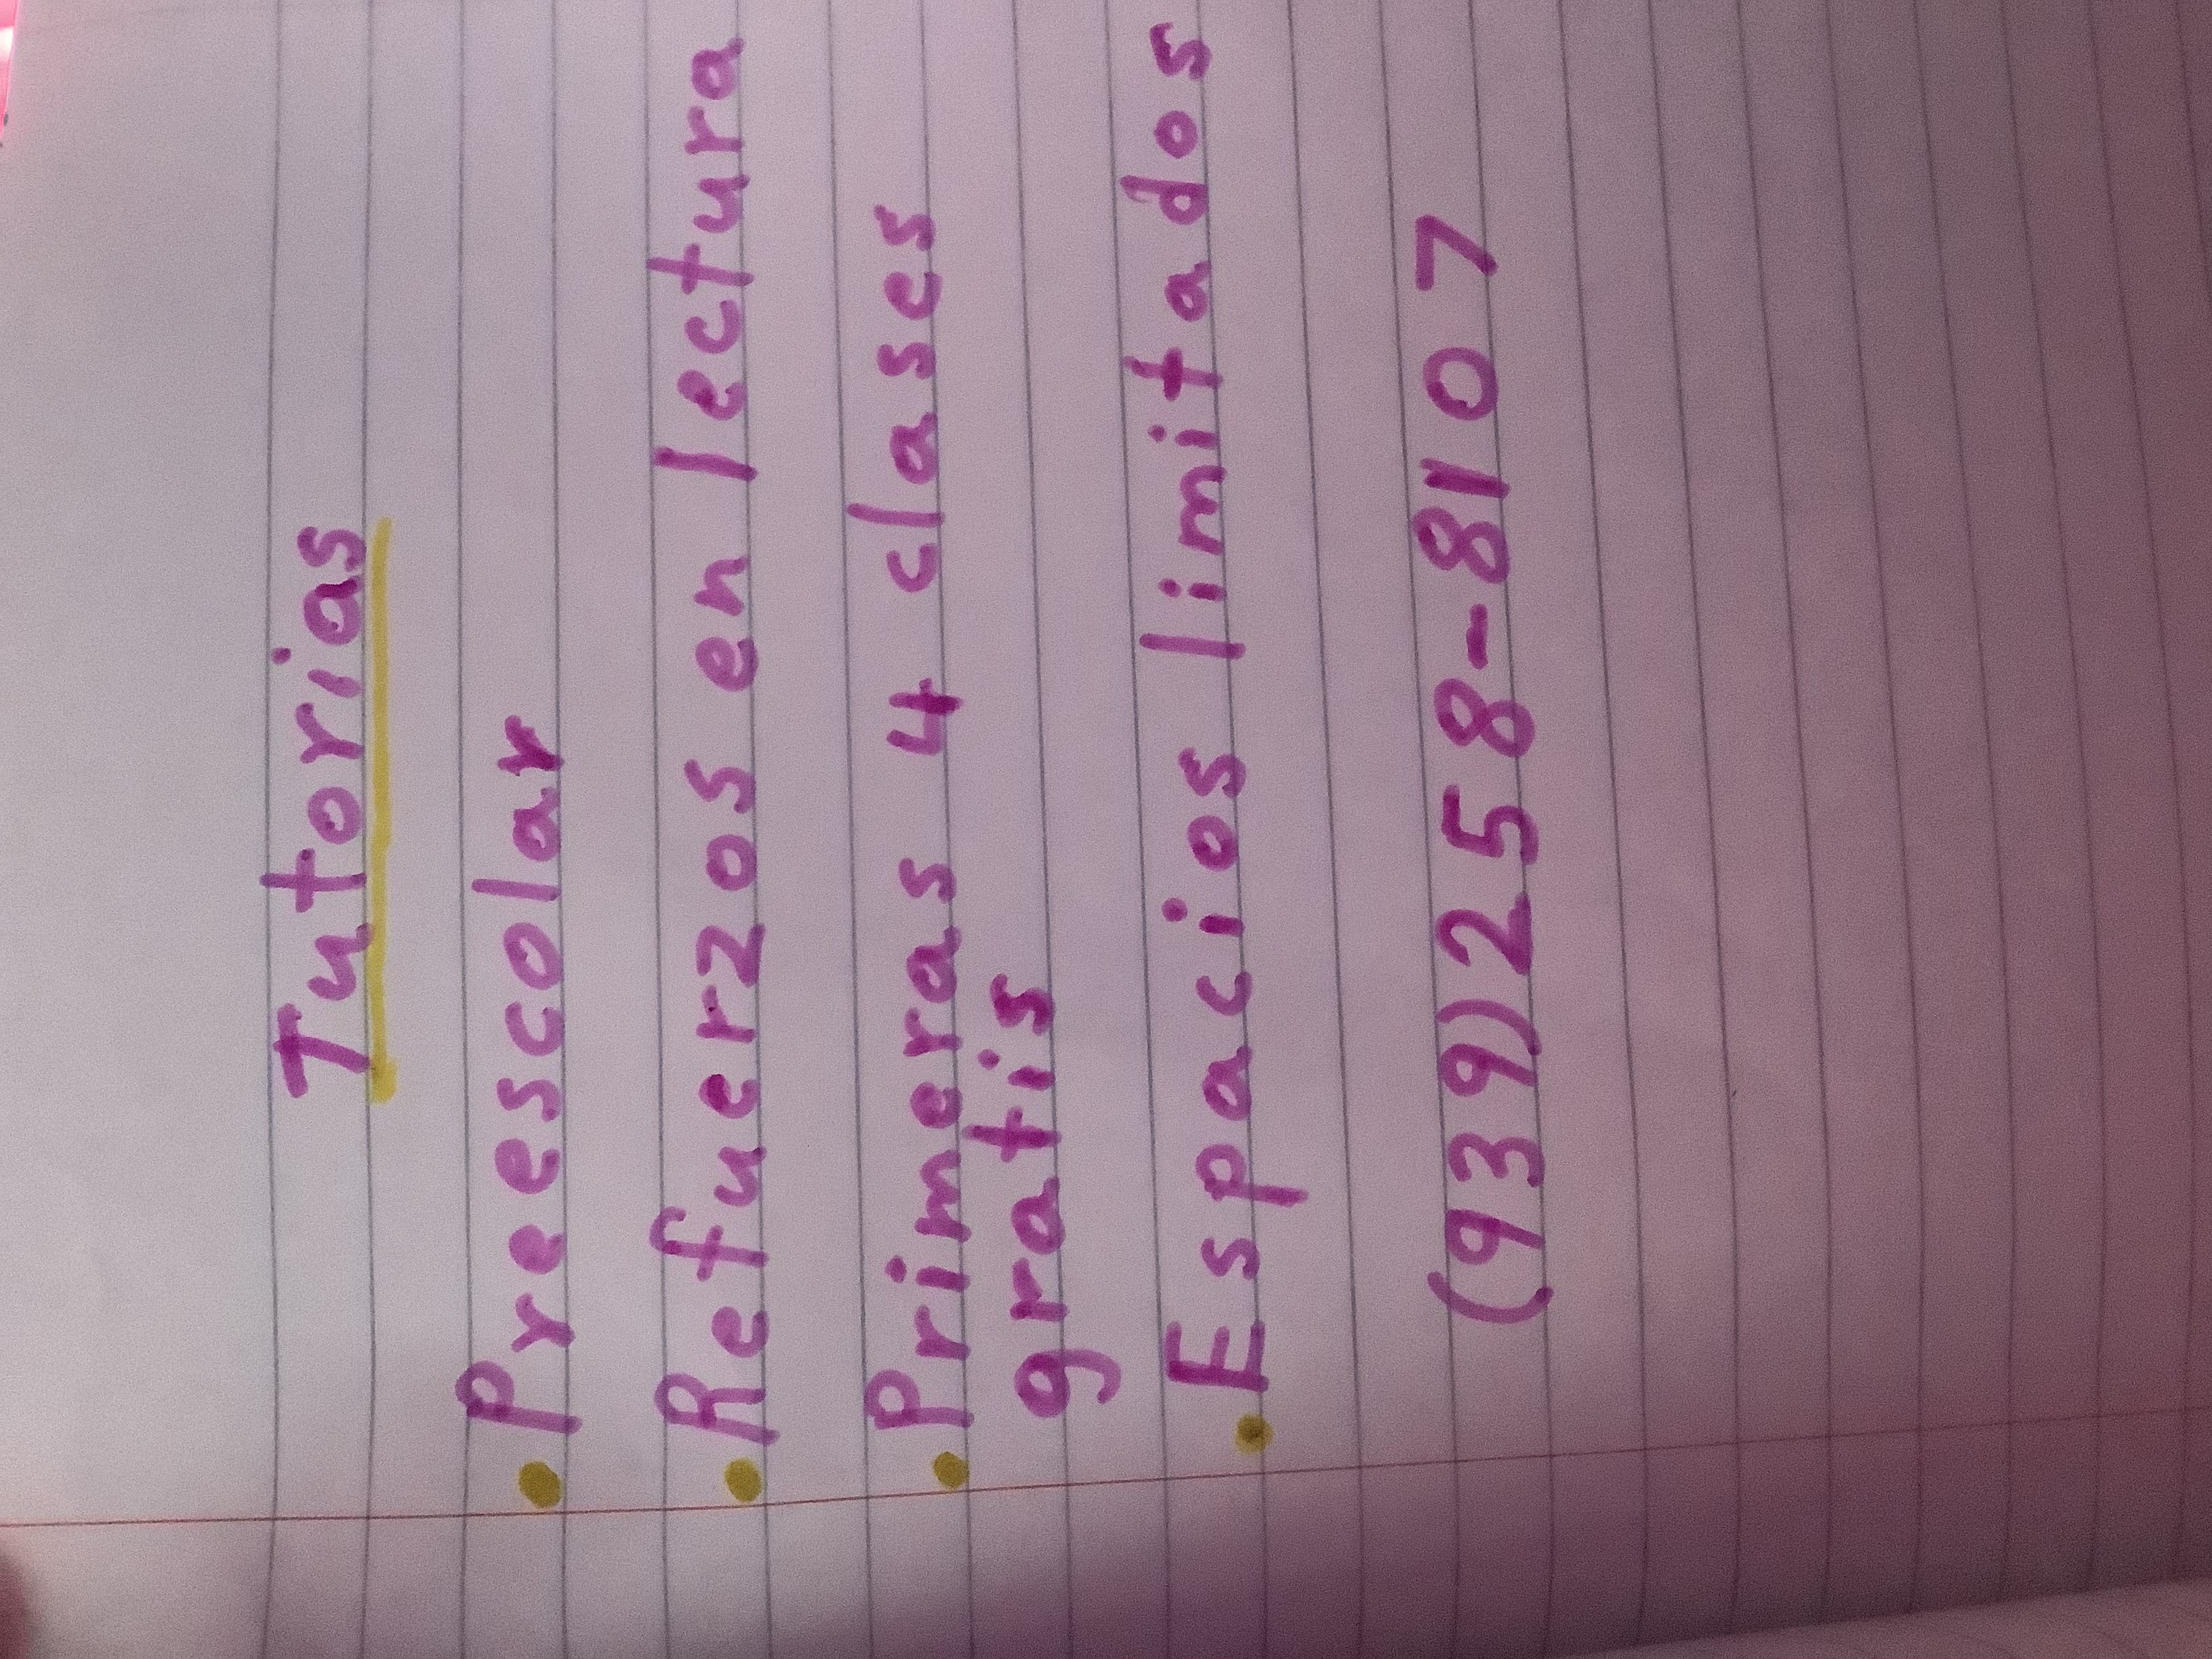 Tutorias
• Preescolar
• Refuerzos en lectura
• Primeras 4 clases
gratis
• Espacios limitados
(939)258-8107